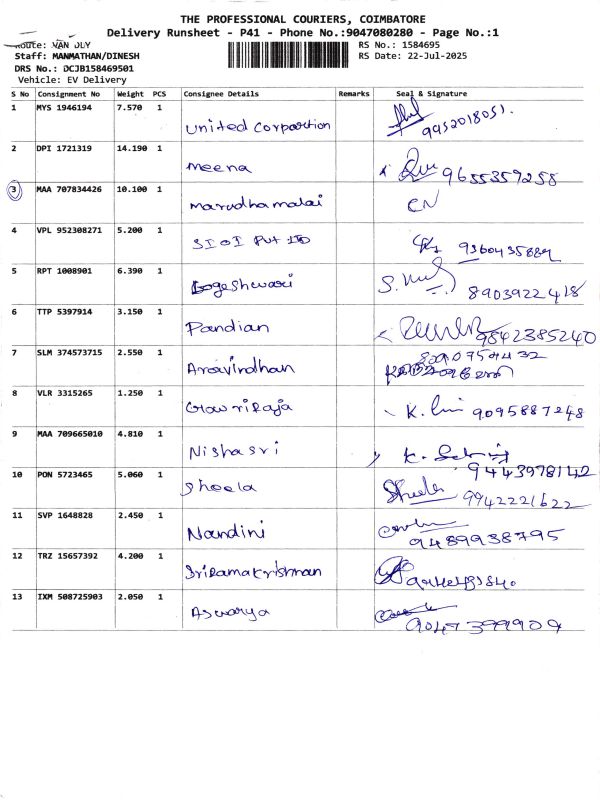 THE PROFESSIONAL COURIERS, COIMBATORE
Delivery Runsheet - P41 - Phone No.:9047080280 - Page No.:1
Route: VAN DLY
RS No.: 1584695
Staff: MANMATHAN/DINESH
RS Date: 22-Jul-2025
DRS No.: DCJB158469501
Vehicle: EV Delivery
S No Consignment No Weight PCS Consignee Details Remarks Seal & Signature
1 MYS 1946194 7.570 1
United Corpartion 9952018051.
2 DPI 1721319 14.190 1
Meena 9655357258
3 MAA 707834426 10.100 1
Marudhamalai CN
4 VPL 952308271 5.200 1
SIOI PVT LTD
5 RPT 1008901 6.390 1
Logeshwari 8903922418
6 TTP 5397914 3.150 1
Pandian 9842385240
7 SLM 374573715 2.550 1
Aravindhan
8 VLR 3315265 1.250 1
Gowriraja 9095887248
9 MAA 709665010 4.810 1
Nishasri 9443978142
10 PON 5723465 5.060 1
Sheela Sheela 9942221622
11 SVP 1648828 2.450 1
Nandini 9489938795
12 TRZ 15657392 4.200 1
Sriramakrishnan
13 IXM 508725903 2.050 1
Aswarya 9047399909